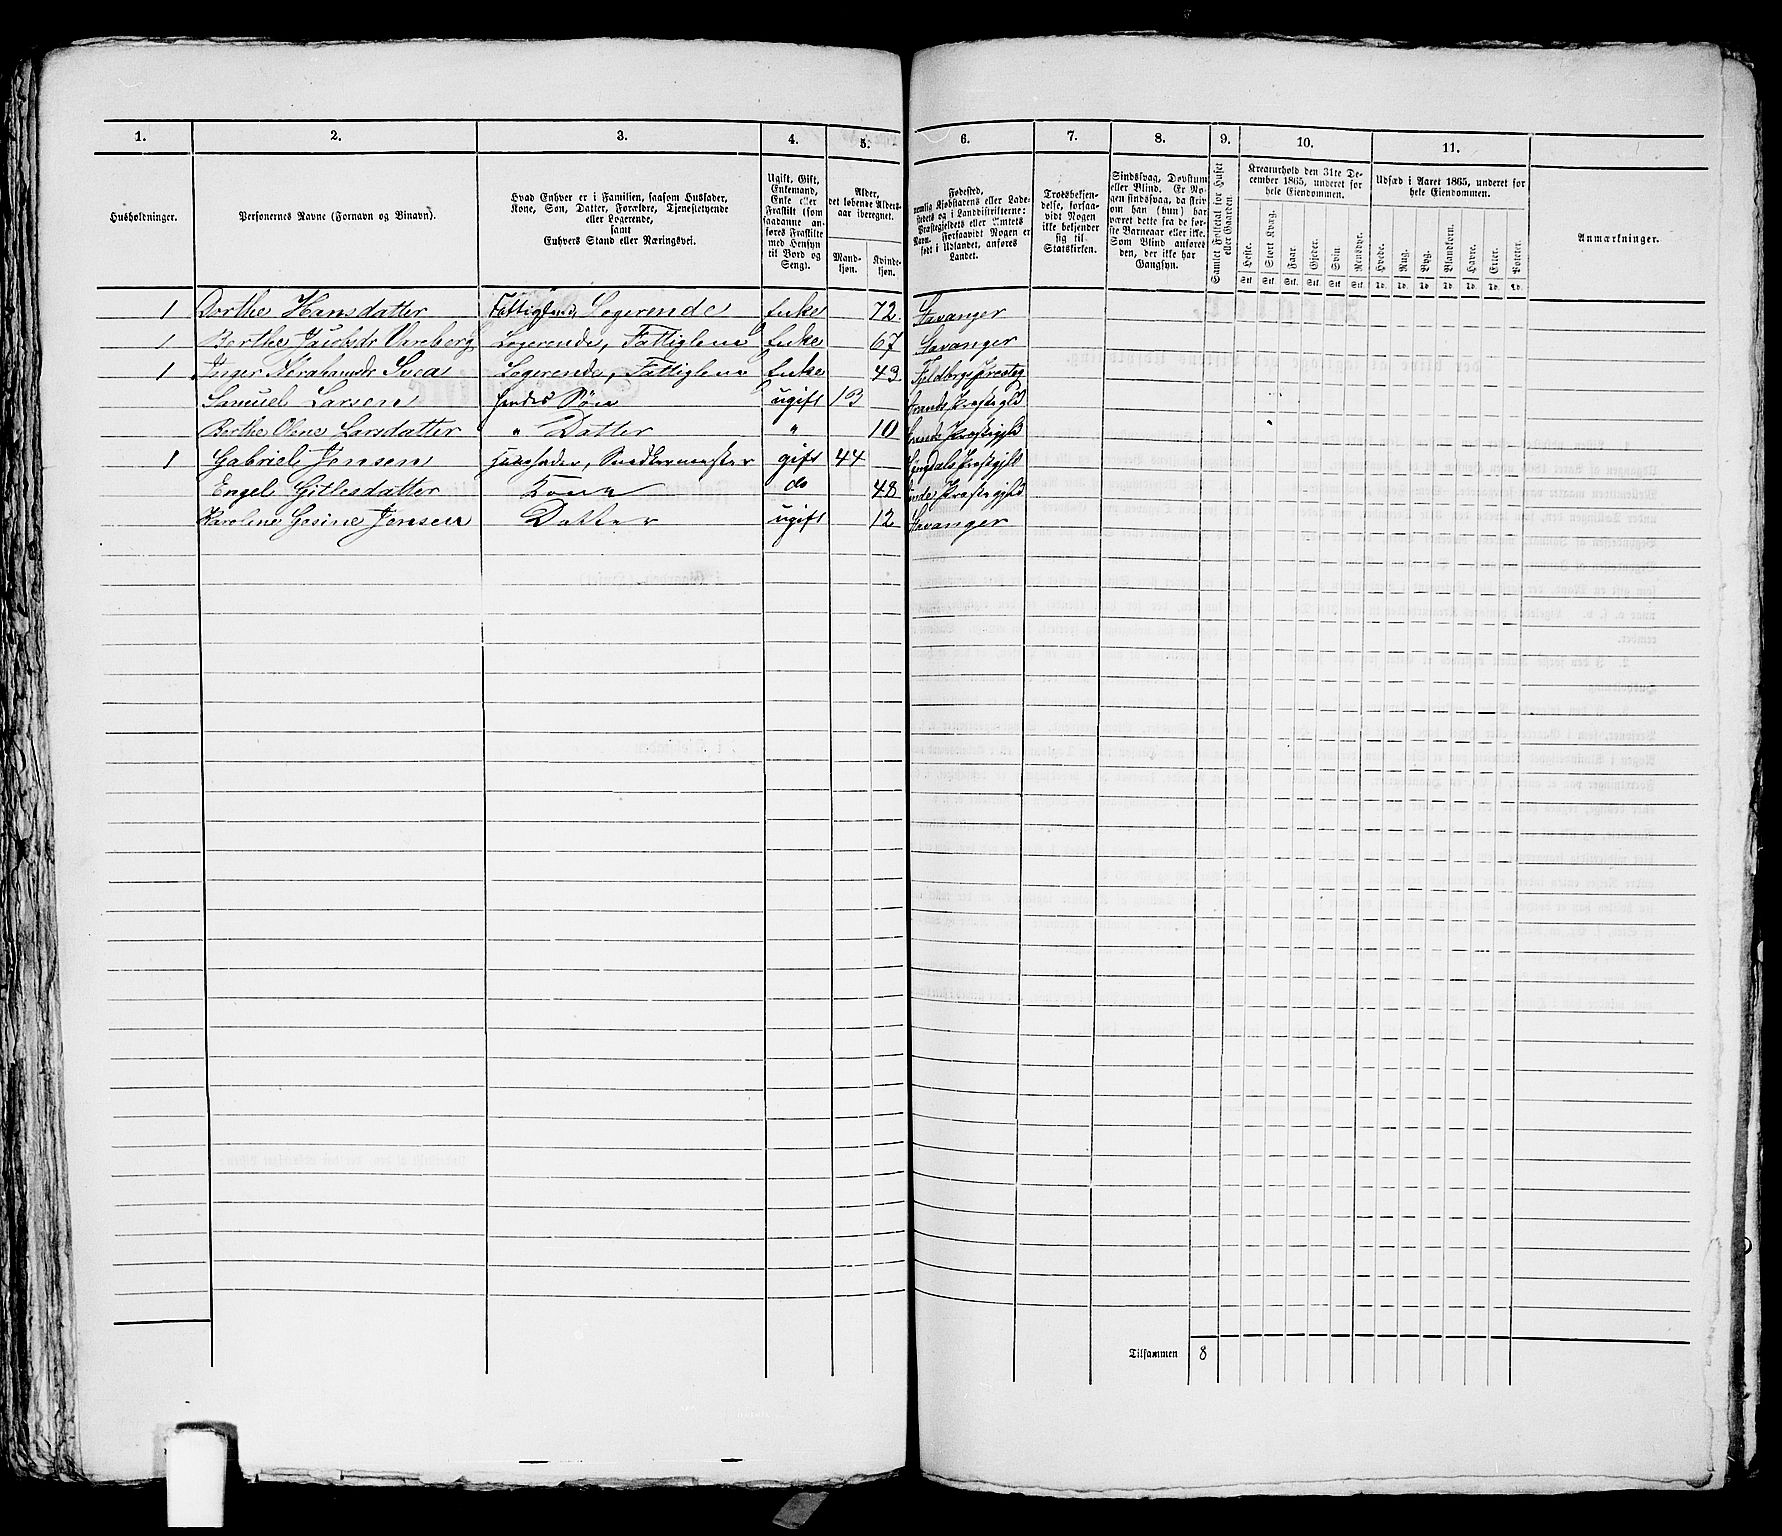 1. 2. 3. 4. 5. 6. 7. 8. 9. 10. 11.
Husholdninger.
Personernes Navne (Fornavn og Binavn).
Hvad Enhver er i Familien, saasom Husfader,
Kone, Søn, Datter, Forældre, Tjenestetyende
eller Logerende,
samt
Enhvers Stand eller Næringsvei.
Ugift, Gift,
Enkemand,
Enke eller
Fraskilt (som
saadanne an-
føres Fraskilte
med Hensyn
til Bord og
Seng).
Alder,
det løbende Alders-
aar iberegnet.
Mand-
kjøn.
Kvinde-
kjøn.
Fødested,
nemlig Kjøbstadens eller Lade-
stedets og i Landdistrikterne:
Præstegjeldets eller Amtets
Navn. Forsaavidt Nogen er
født i Udlandet, anføres
Landet.
Troesbekjen-
delse, forsaa-
vidt Nogen
ikke bekjender
sig til
Statskirken.
Sindssvag, Døvstum
eller Blind. Er No-
gen sindssvag, da skriv
om han (hun) har
været dette fra de før-
ste Barneaar eller ikke.
Som Blind anføres
den, der ikke har
Gangsyn.
Samlet Folketal for Huset
eller Gaarden.
Kreaturhold den 31te De-
cember 1865, underet for
hele Eiendommen.
Heste. Stort Kvæg. Faar. Gjeder. Svin. Rensdyr.
Stk. Stk. Stk. Stk. Stk. Stk.
Udsæd i Aaret 1865, underet for
hele Eiendommen.
Hvede. Rug. Byg. Blandkorn. Havre. Erter. Poteter.
Td. Td. Td. Td. Td. Td. Td.
Anmærkninger.
1 Dorthe Hansdatter Fattiglem, Logerende Enke 72 Stavanger
1 Berthe Logerende, Fattiglem Enke 67 Stavanger
1 Inger Abrahamsdr Svea Logerende, Fattiglem Enke 43
Samuel Larsen Hendes Søn ugift 13 Strands
Berthe Olene Larsdatter " Datter " 10
1 Gabriel Jensen Huusfader, Snedkermester gift 44
Engel Gitlesdatter Kone do 48
Karoline Gosine Jensen Datter ugift 12 Stavanger
Tilsammen 8